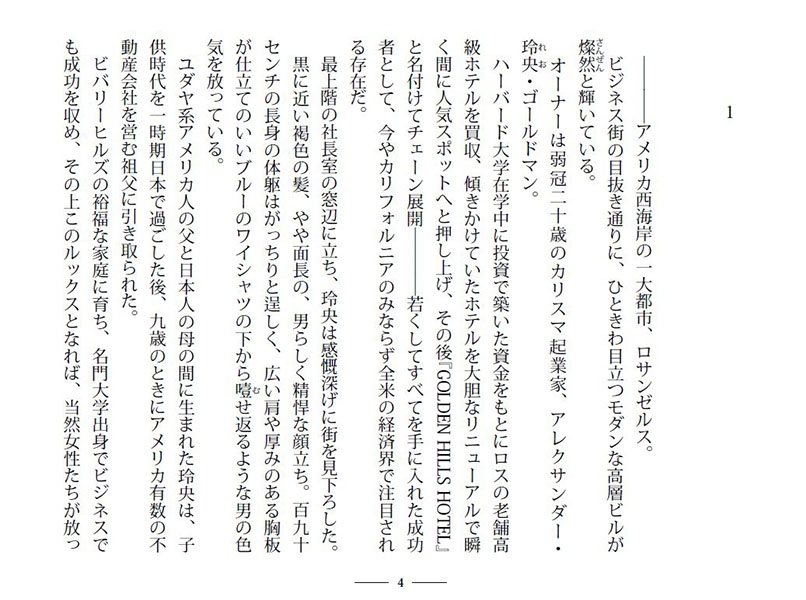 1
――――アメリカ西海岸の一大都市、ロサンゼルス。
ビジネス街の目抜き通りに、ひときわ目立つモダンな高層ビルが
燦然と輝いている。
さんぜん
オーナーは弱冠二十歳のカリスマ起業家、アレクサンダー・
玲央・ゴールドマン。
れお
ハーバード大学在学中に投資で築いた資金をもとにロスの老舗高
級ホテルを買収、傾きかけていたホテルを大胆なリニューアルで瞬
く間に人気スポットへと押し上げ、その後『GOLDEN HILLS HOTEL』
と名付けてチェーン展開――――若くしてすべてを手に入れた成功
者として、今やカリフォルニアのみならず全米の経済界で注目され
る存在だ。
最上階の社長室の窓辺に立ち、玲央は感慨深げに街を見下ろした。
黒に近い褐色の髪、やや面長の、男らしく精悍な顔立ち。百九十
センチの長身の体躯はがっちりと逞しく、広い肩や厚みのある胸板
が仕立てのいいブルーのワイシャツの下から噎せ返るような男の色
む
気を放っている。
ユダヤ系アメリカ人の父と日本人の母の間に生まれた玲央は、子
供時代を一時期日本で過ごした後、九歳のときにアメリカ有数の不
動産会社を営む祖父に引き取られた。
ビバリーヒルズの裕福な家庭に育ち、名門大学出身でビジネスで
も成功を収め、その上このルックスとなれば、当然女性たちが放っ
4